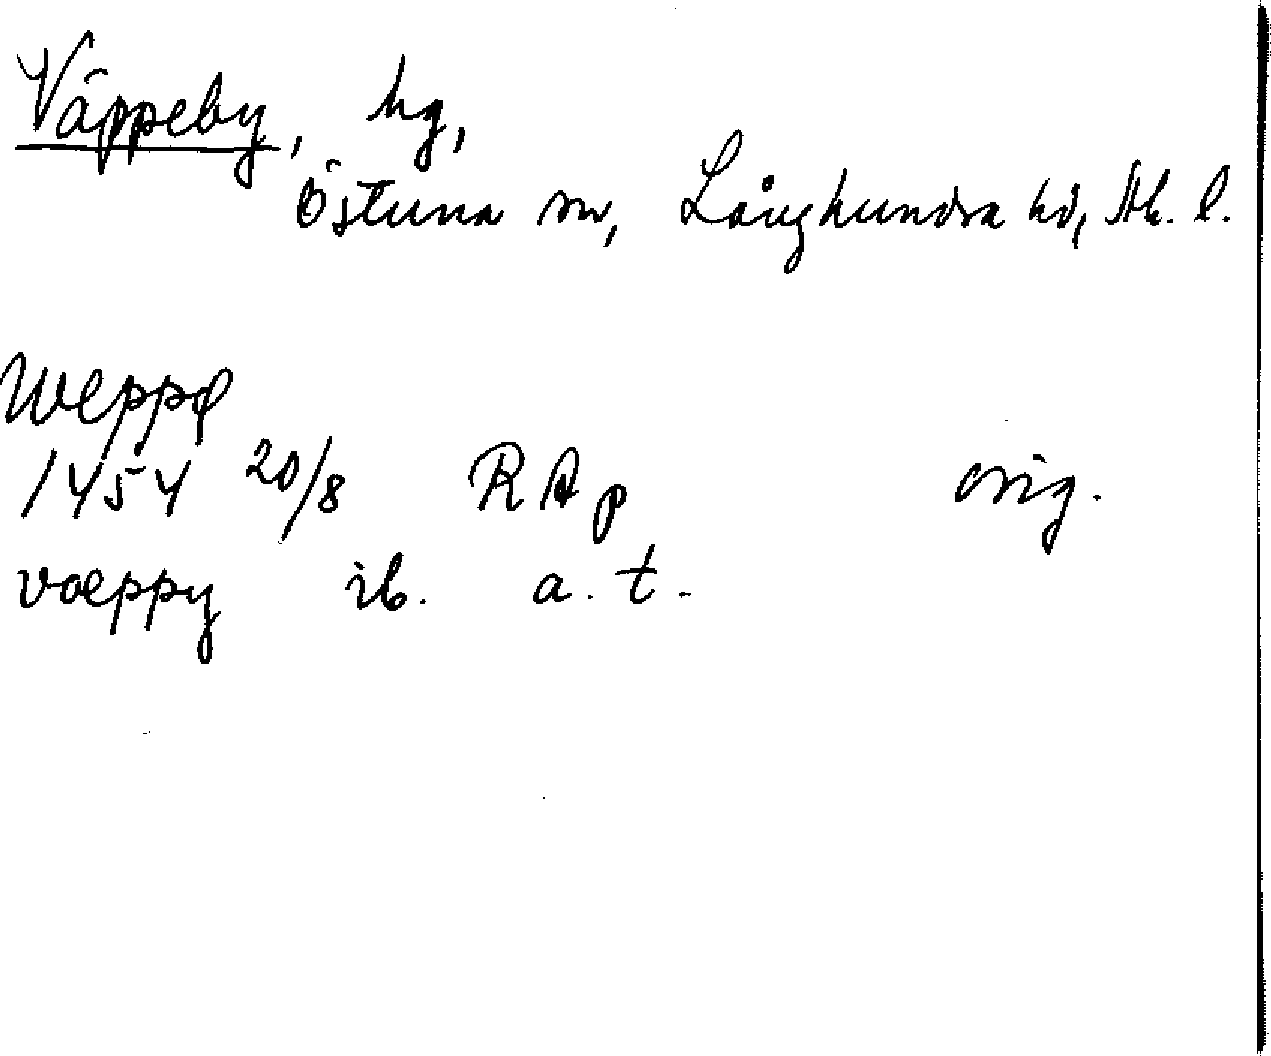 Väppeby, hg,
Östuna sn, Långhundra hd, Sth. l.
Weppø
1454 20/8 RAp orig.
væppy ib. a. t.